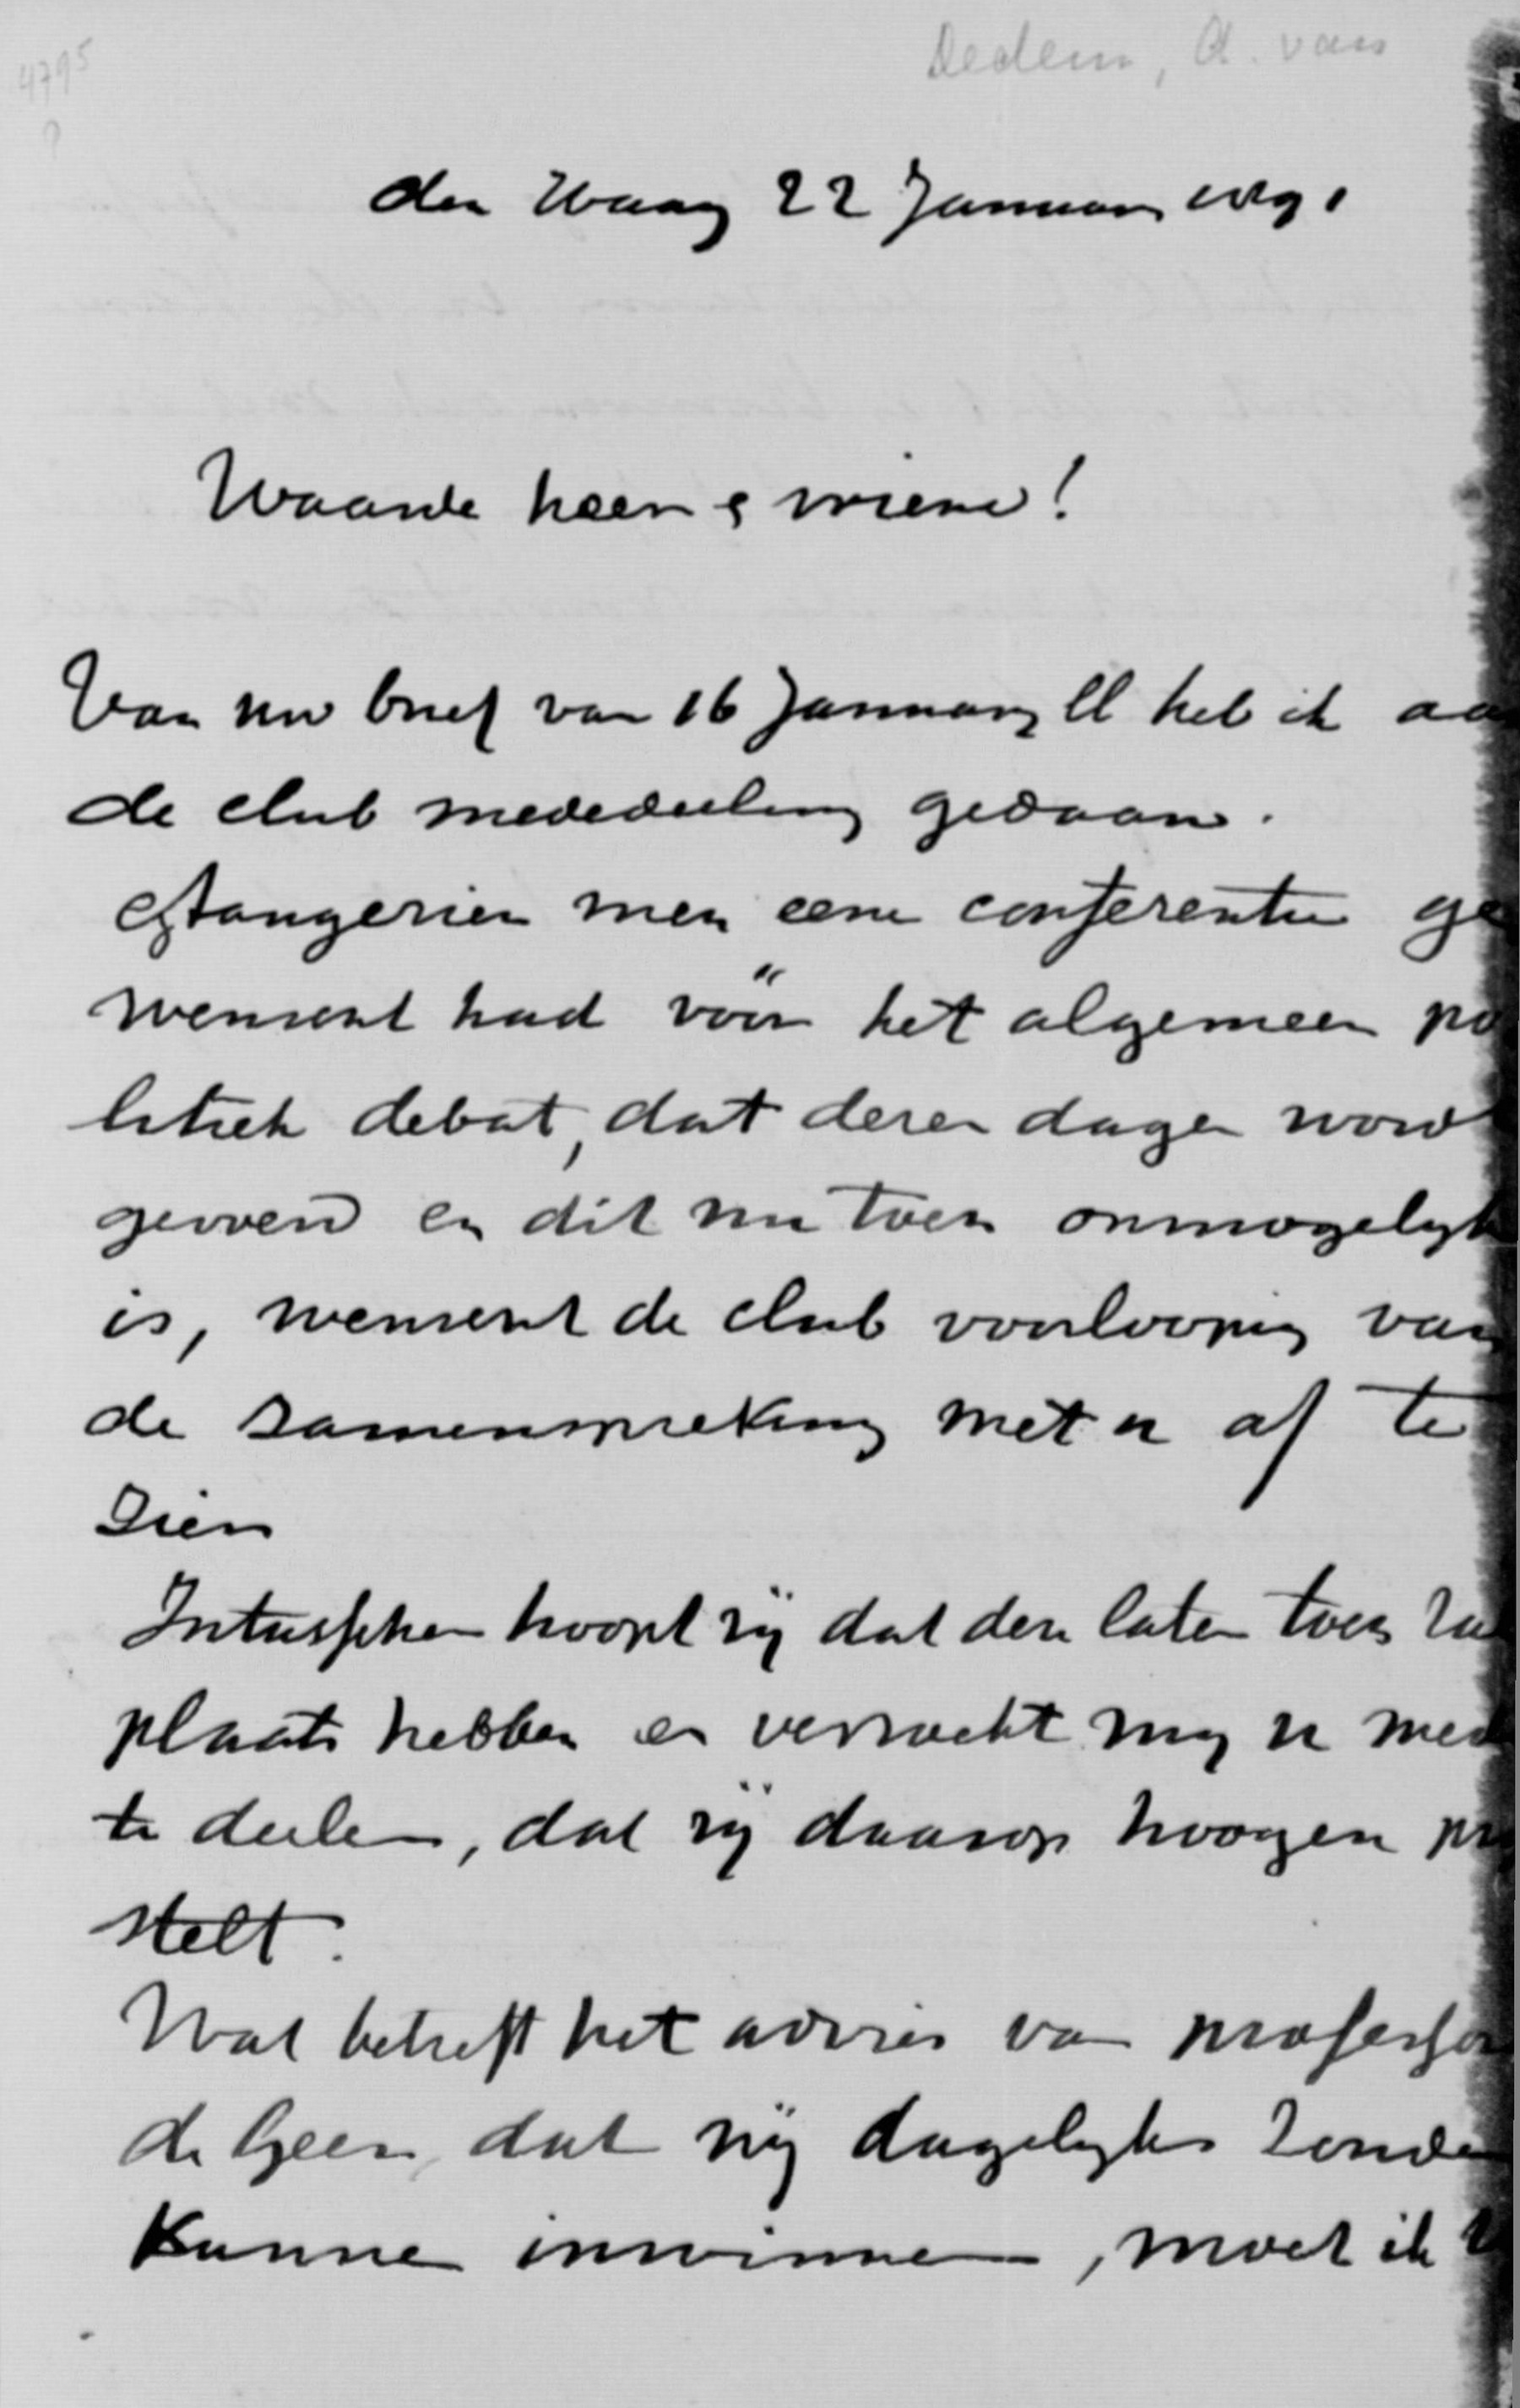 4795
Dedem, A. van
den Haag 22 Januari 1891
Waarde heer & vriend!
Van uw brief van 16 January ll heb ik aa
de club mededeeling gedaan.
Aangezien men eene conferentie ge
wenscht had vóór het algemeen po
litiek debat, dat dezer dagen word
gevoerd en dit nu toch onmogelyk
is, wenscht de club voorloopig van
de samenspreking met u af te
zien
Intusschen hoopt zij dat deze later toch za
plaats hebben en verzoekt my u med
te deelen, dat zij daarop hoogen pr
stelt.
Wat betreft het advies van professor
de Geer, dat wij dagelyks zonde
kunnen inwinnen, moet ik